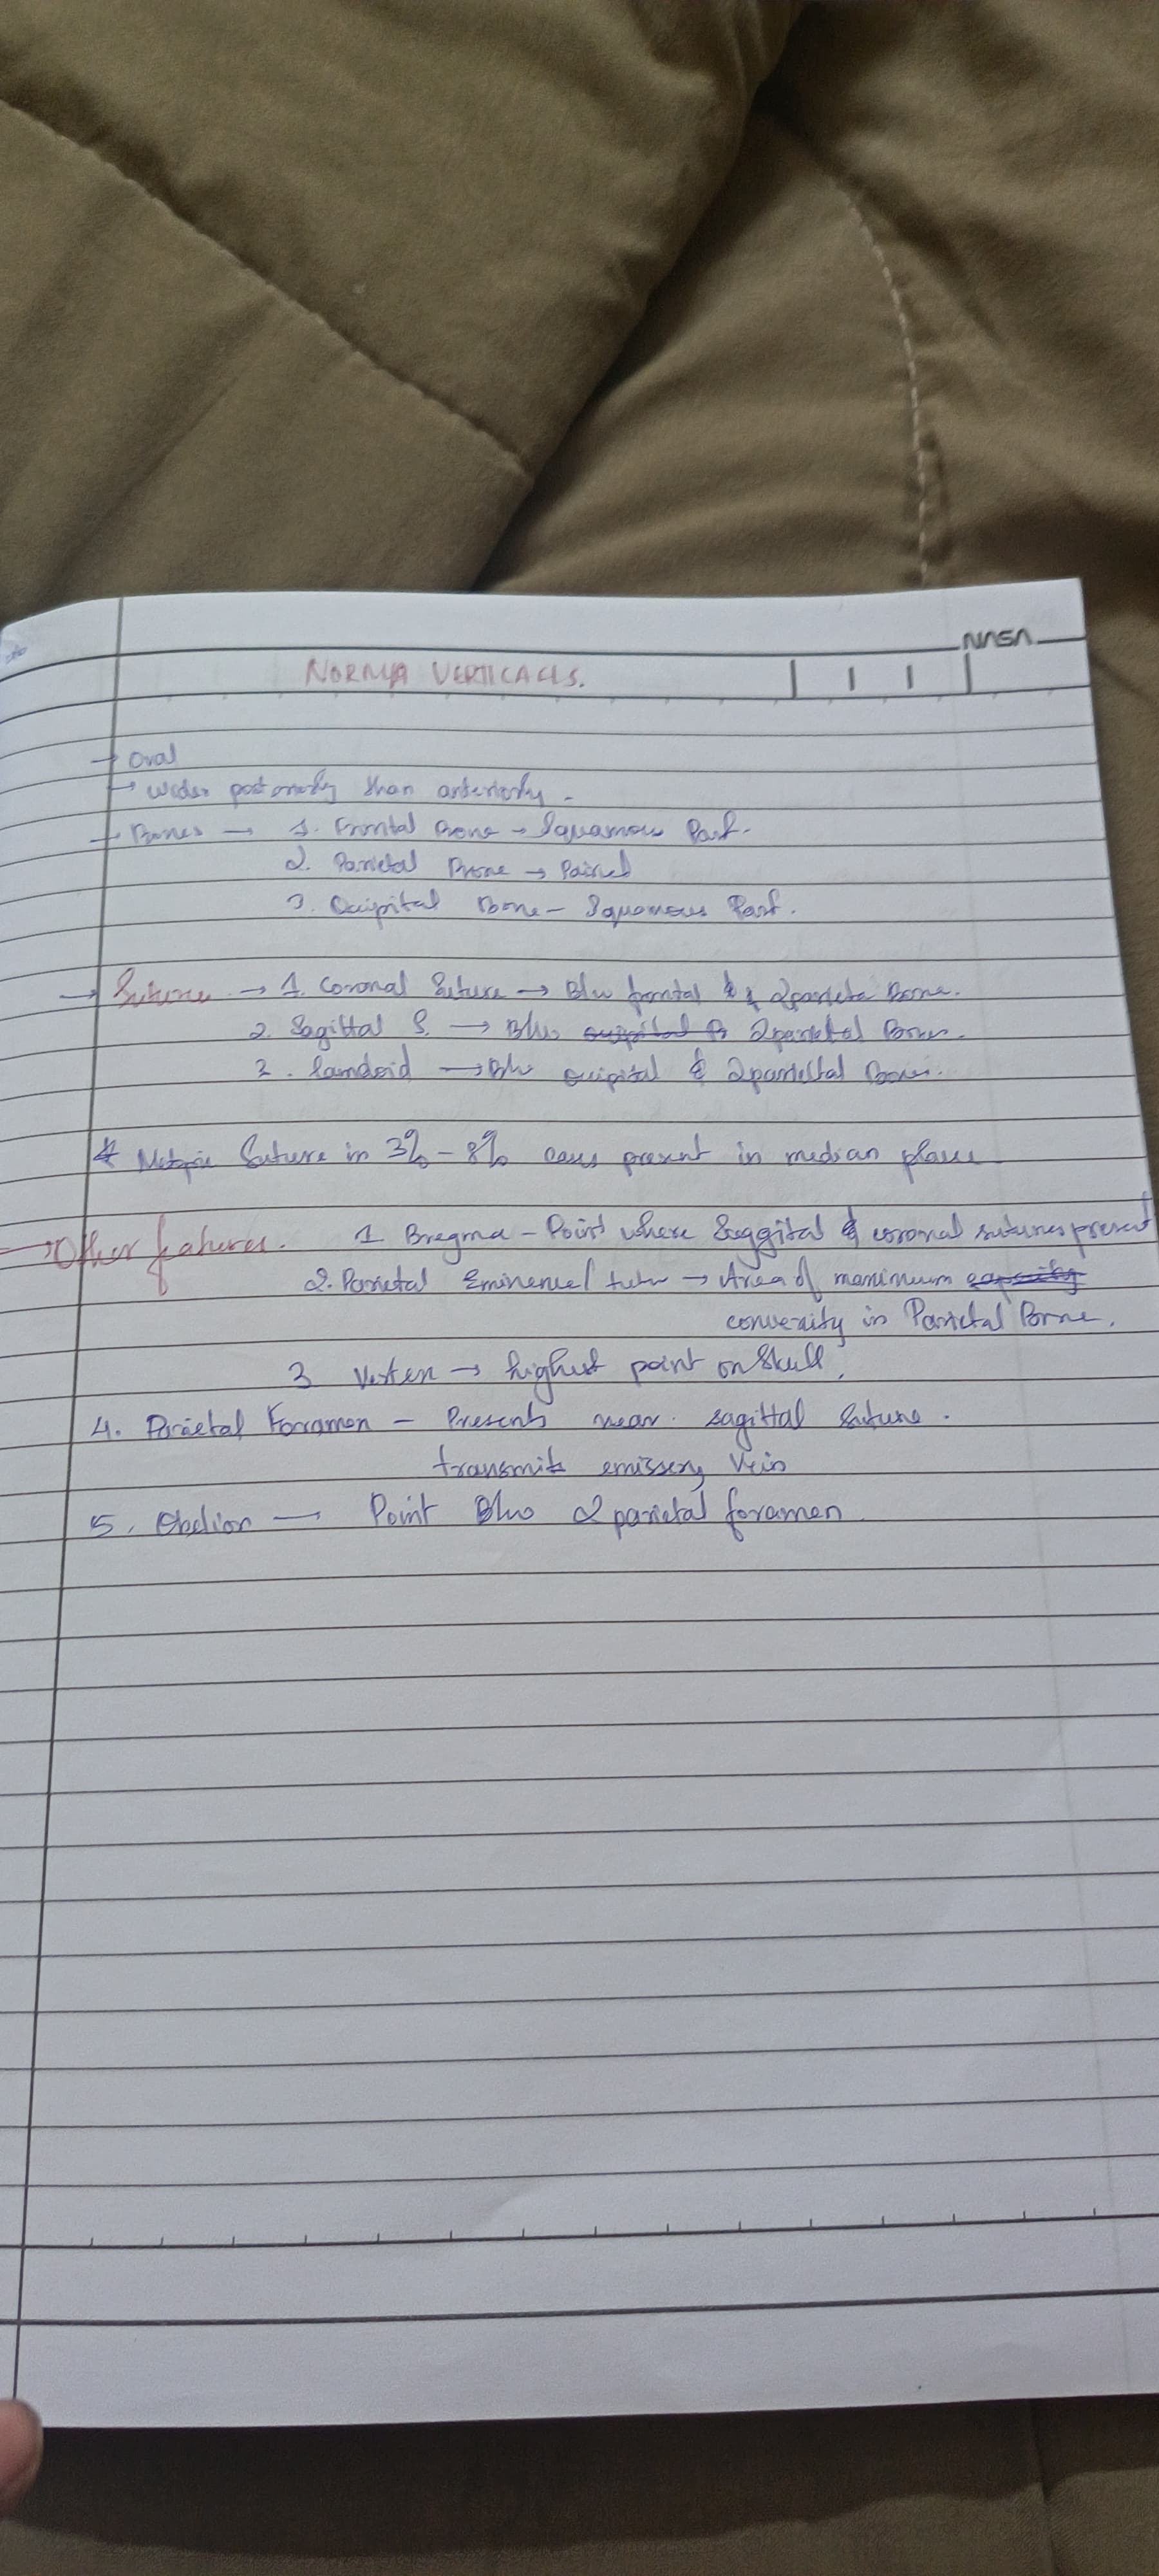 NASA
NORMA VERTICALIS.
→ Oval
→ wider posteriorly than anteriorly.
→ Bones → 1. Frontal Bone → Squamous Part.
2. Parietal Bone → Paired
3. Occipital Bone - Squamous Part.
→ Suture → 1. Coronal Suture → Blw frontal & 2 parietal Bone.
2. Sagittal S. → Blw 2 parietal Bones.
3. lamdoid → Blw occipital & 2 parietal Bones.
* Metopic Suture in 3% - 8% cases present in median plane
→ Other fatures. 1 Bregma - Point where Saggital & coronal sutures present
2. Parietal Eminence / tuber → Area of maximum
convexity in Parietal Bone.
3 Vertex → highest point on Skull.
4. Parietal Forramen - Presents near sagittal Suture.
transmits emissery Vein
5. Obelion → Point Blw 2 parietal foramen